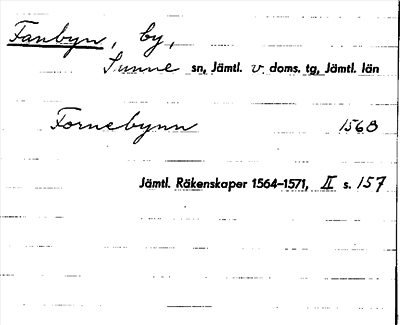 Fanbyn, by,
Sunne sn, Jämtl. v doms. tg, Jämtl. län
Fornebynn 1568
Jämtl. Räkenskaper 1564–1571, II s. 157